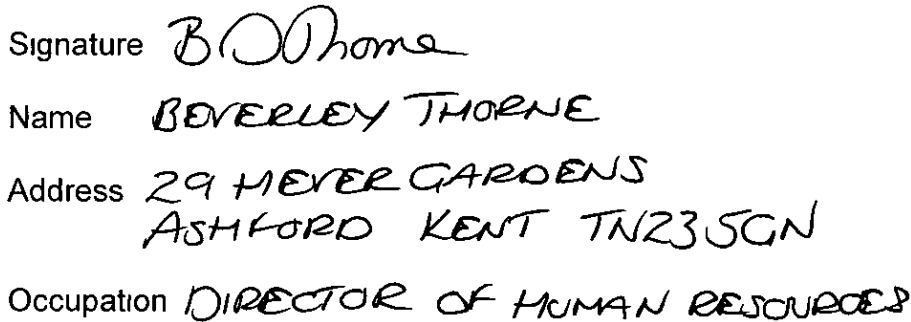 Signature B D Thorne
Name BEVERLEY THORNE
Address 29 HEVER GARDENS
ASHFORD KENT TN23 5GN
Occupation DIRECTOR OF HUMAN RESOURCES